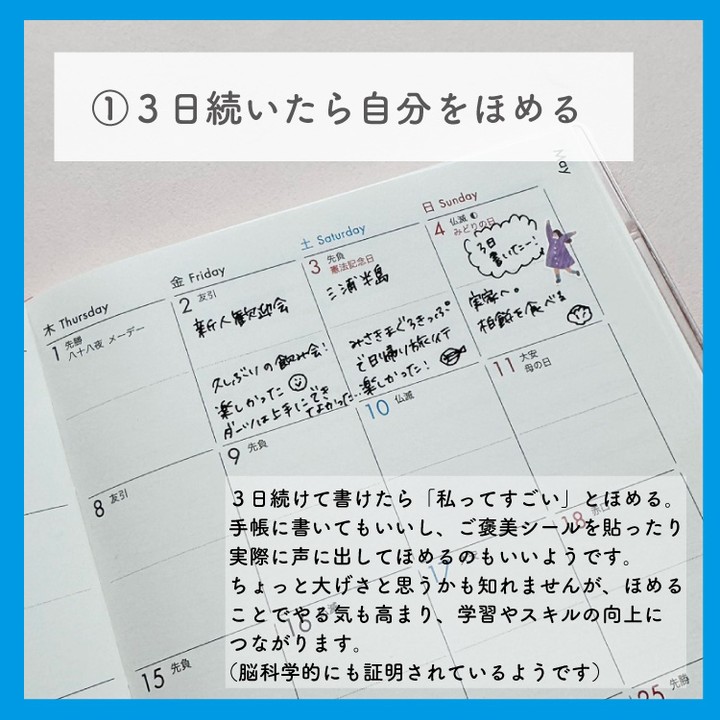 ①３日続いたら自分をほめる
May
木 Thursday
金 Friday
土 Saturday
日 Sunday
1 先勝
八十八夜 メーデー
2 友引
新人歓迎会
久しぶりの飲み会！
楽しかった
ダーツは上手にでき
てよかった…
3 先負
憲法記念日
三浦半島
みさきまぐろきっぷ
で日帰り旅行
楽しかった！
4 仏滅
みどりの日
3日
書いたー！
実家へ。
柏餅を食べる
8 友引
9 先負
10 仏滅
11 大安
母の日
15 先負
16 仏滅
17
18 赤口
25 先勝
３日続けて書けたら「私ってすごい」とほめる。
手帳に書いてもいいし、ご褒美シールを貼ったり
実際に声に出してほめるのもいいようです。
ちょっと大げさと思うかも知れませんが、ほめる
ことでやる気も高まり、学習やスキルの向上に
つながります。
（脳科学的にも証明されているようです）